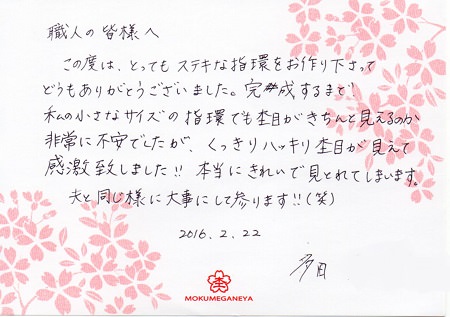 職人の皆様へ
この度は、とってもステキな指環をお作り下さって
どうもありがとうございました。完成するまで!
私の小さなサイズの指環でも杢目がきちんと見えるのか
非常に不安でしたが、くっきりハッキリ杢目が見えて
感激致しました!! 本当にきれいで見とれてしまいます。
夫と同じ様に大事にして参ります!!(笑)
2016.2.22
MOKUMEGANEYA